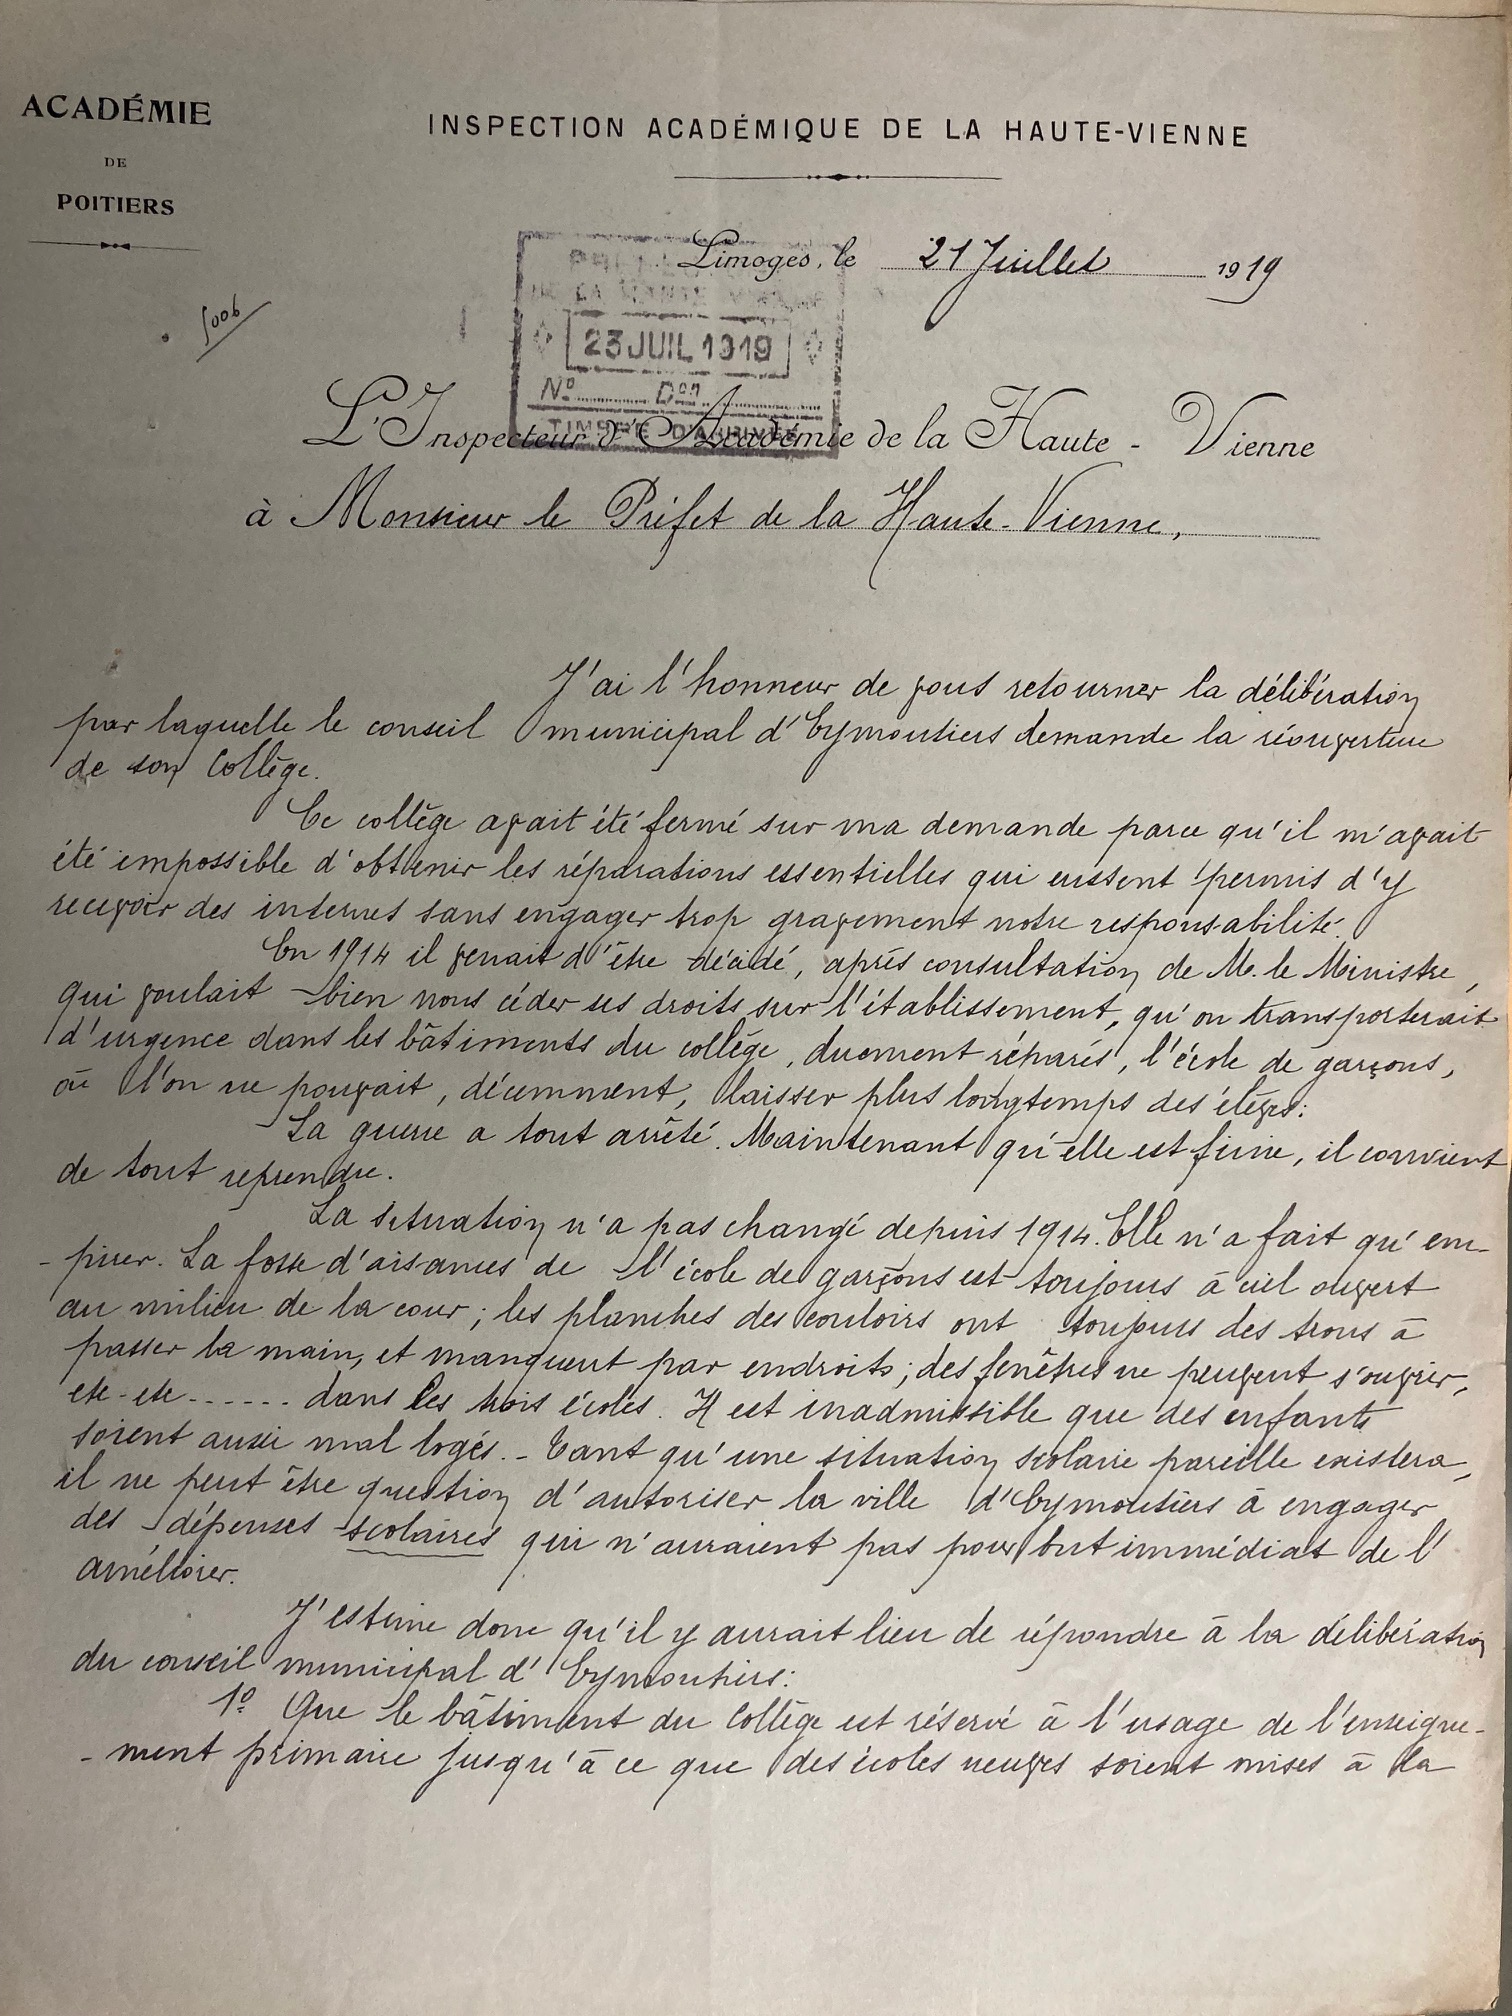 ACADÉMIE
DE
POITIERS
INSPECTION ACADÉMIQUE DE LA HAUTE-VIENNE
Limoges, le 21 Juillet 1919
5006
DE LA HAUTE VIENNE
23 JUIL 1919
N° Don
TIMBRE D'ARRIVÉE
L'Inspecteur d'Académie de la Haute-Vienne
à Monsieur le Préfet de la Haute-Vienne,
J'ai l'honneur de vous retourner la délibération
par laquelle le conseil municipal d'Eymoutiers demande la réouverture
de son Collège.
Ce collège avait été fermé sur ma demande parce qu'il m'avait
été impossible d'obtenir les réparations essentielles qui eussent permis d'y
recevoir des internes sans engager trop gravement notre responsabilité.
En 1914 il venait d'être décidé, après consultation de M. le Ministre,
qui voulait bien nous céder ses droits sur l'établissement, qu'on transporterait
d'urgence dans les bâtiments du collège, duement réparés, l'école de garçons,
où l'on ne pouvait, décemment, laisser plus longtemps des élèves.
La guerre a tout arrêté. Maintenant qu'elle est finie, il convient
de tout reprendre.
La situation n'a pas changé depuis 1914. Elle n'a fait qu'em-
-pirer. La fosse d'aisances de l'école de garçons est toujours à ciel ouvert
au milieu de la cour ; les planches des couloirs ont toujours des trous à
passer la main, et manquent par endroits ; des fenêtres ne peuvent s'ouvrir,
etc- etc- ...... dans les trois écoles. Il est inadmissible que des enfants
soient aussi mal logés. - Tant qu'une situation scolaire pareille existera,
il ne peut être question d'autoriser la ville d'Eymoutiers à engager
des dépenses scolaires qui n'auraient pas pour but immédiat de l'
améliorer.
J'estime donc qu'il y aurait lieu de répondre à la délibération
du conseil municipal d'Eymoutiers :
1° Que le bâtiment du Collège est réservé à l'usage de l'enseigne-
-ment primaire jusqu'à ce que des écoles neuves soient mises à la